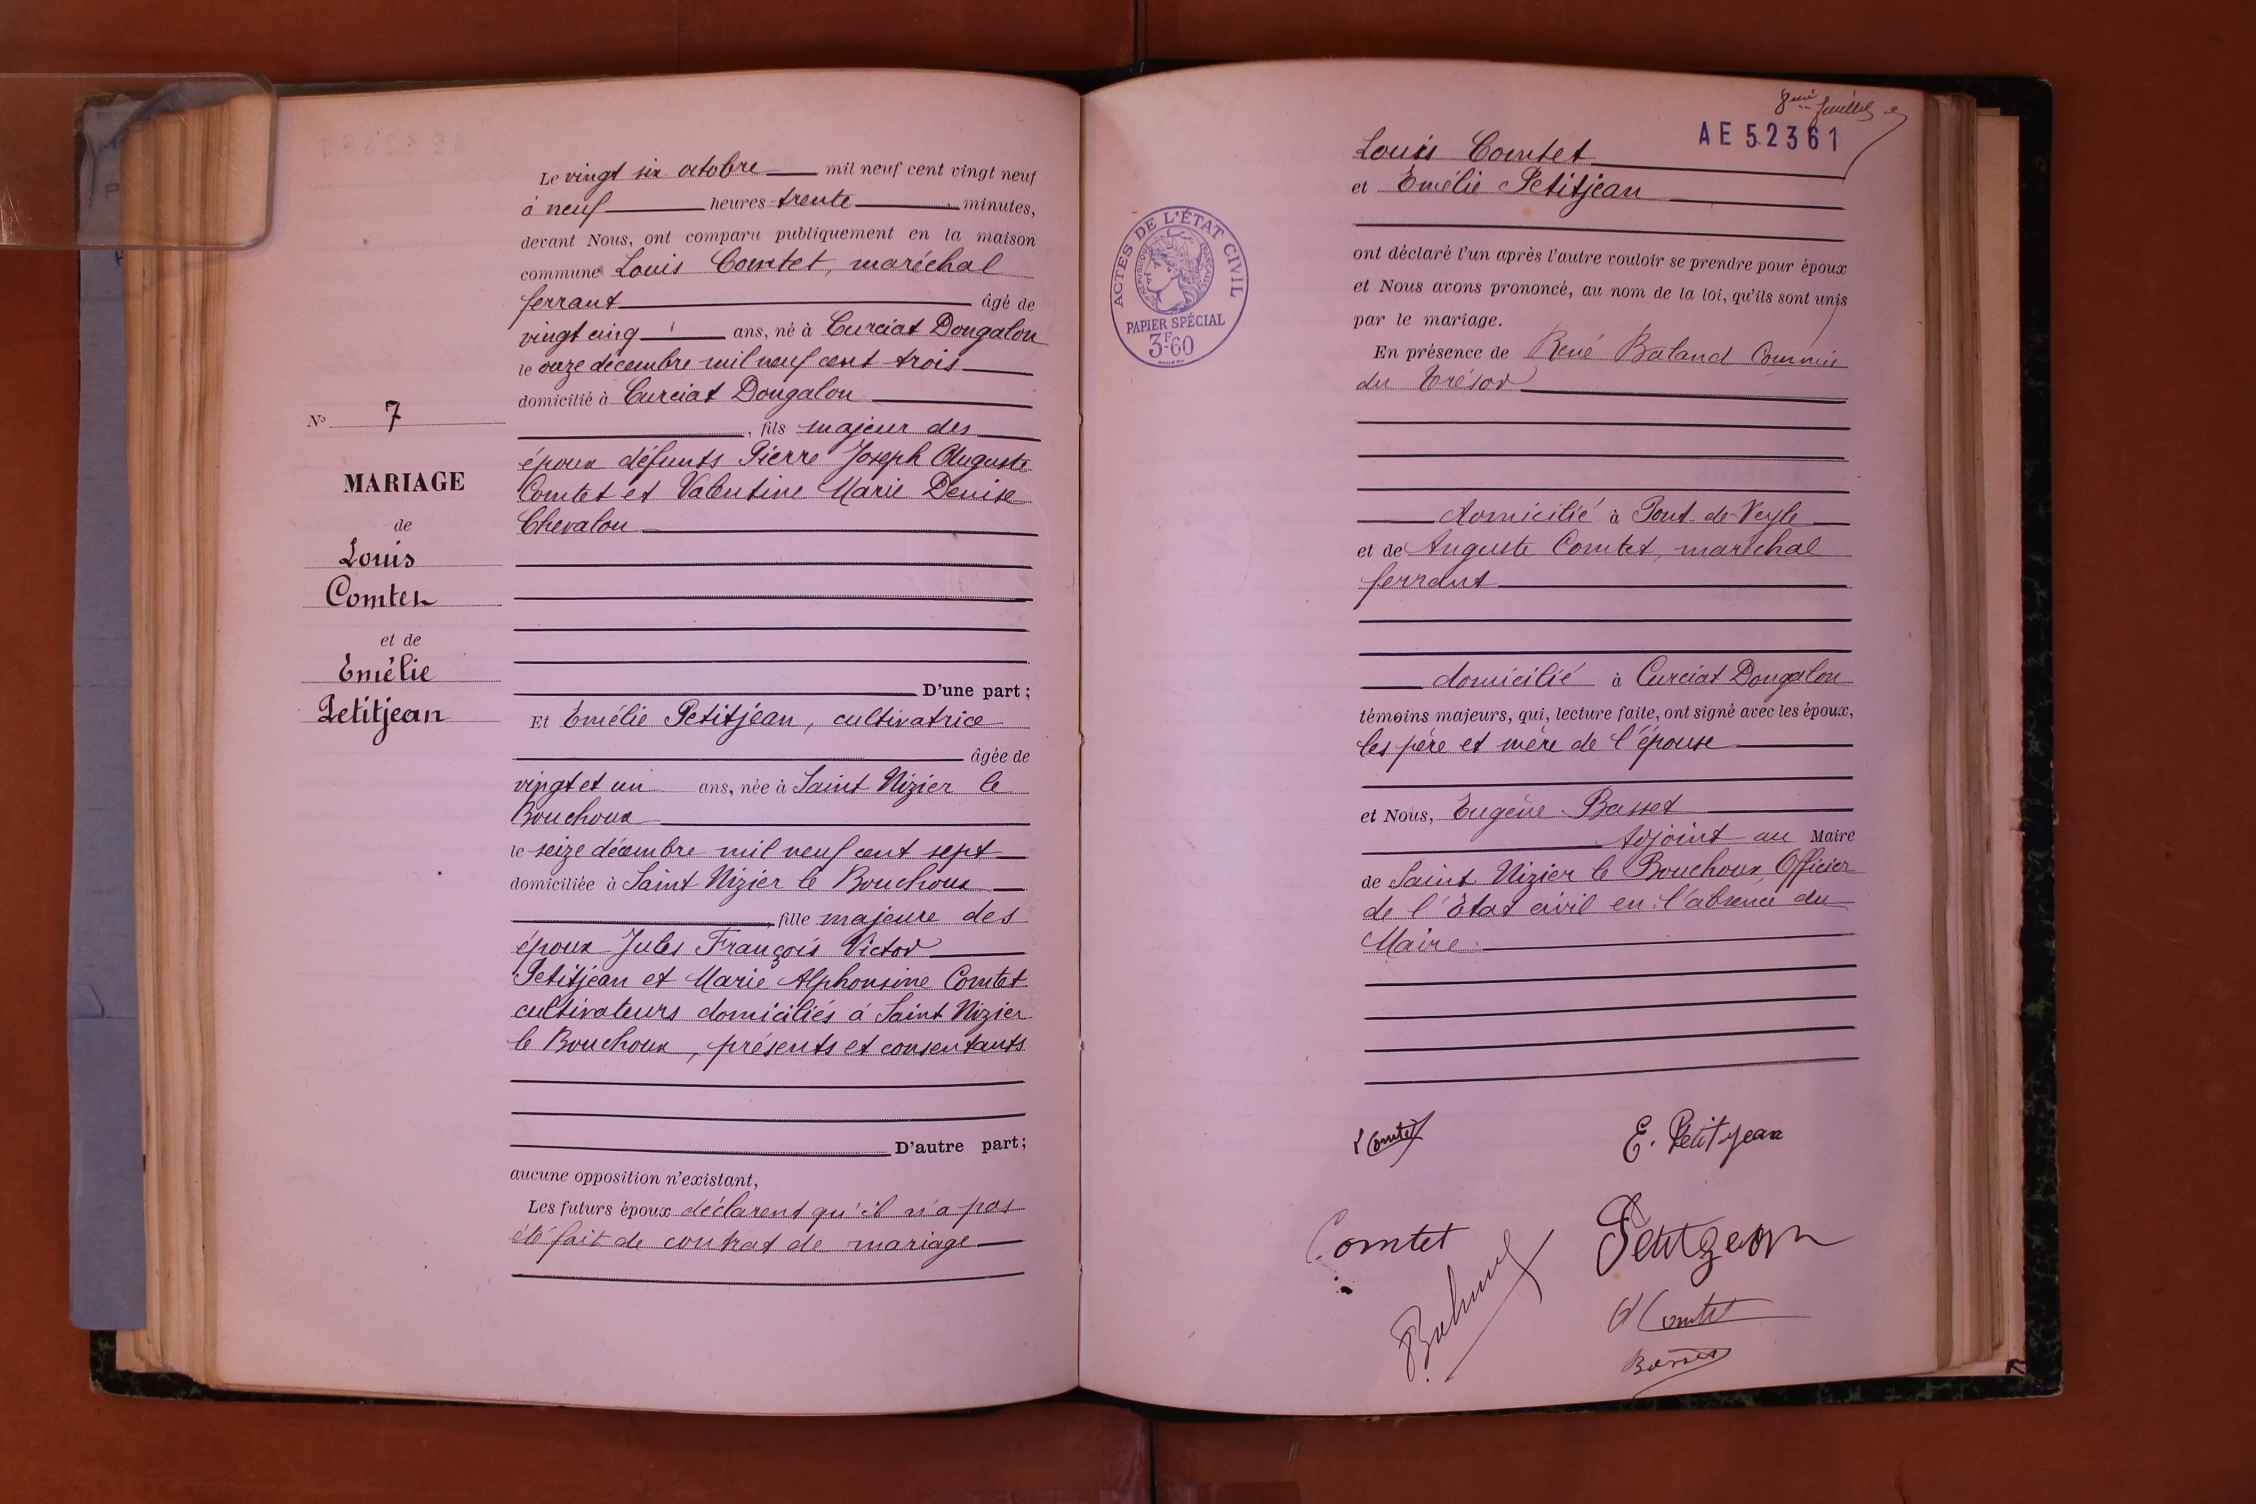 Le vingt six octobre mil neuf cent vingt neuf
à neuf heures trente minutes,
devant Nous, ont comparu publiquement en la maison
commune Louis Comtet, maréchal
ferrant âgé de
vingt cinq ans, né à Curciat Dongalon
le onze décembre mil neuf cent trois
domicilié à Curciat Dongalon
, fils majeur des
époux défunts Pierre Joseph Auguste
Comtet et Valentine Marie Denise
Chevalon
N° 7
MARIAGE
de
Louis
Comtet
et de
Emélie
Petitjean
D'une part ;
Et Emélie Petitjean, cultivatrice
âgée de
vingt et un ans, née à Saint Nizier le
Bouchoux
le seize décembre mil neuf cent sept
domiciliée à Saint Nizier le Bouchoux
, fille majeure des
époux Jules François Victor
Petitjean et Marie Alphonsine Comtet
cultivateurs domiciliés à Saint Nizier
le Bouchoux, présents et consentants
D'autre part ;
aucune opposition n'existant,
Les futurs époux déclarent qu'il n'a pas
été fait de contrat de mariage
8me feuillet
AE 52361
ACTES DE L'ÉTAT CIVIL
RÉPUBLIQUE FRANÇAISE
PAPIER SPÉCIAL
3F60
Louis Comtet
et Emélie Petitjean
ont déclaré l'un après l'autre vouloir se prendre pour époux
et Nous avons prononcé, au nom de la loi, qu'ils sont unis
par le mariage.
En présence de René Baland Commis
du Trésor
domicilié à Pont-de-Veyle
et de Auguste Comtet, maréchal
ferrant
domicilié à Curciat Dongalon
témoins majeurs, qui, lecture faite, ont signé avec les époux,
les père et mère de l'épouse
et Nous, Eugène Basset
Adjoint au Maire
de Saint Nizier le Bouchoux, Officier
de l'État civil en l'absence du
Maire.
L Comtet
E. Petitjean
Comtet
Petitjean
A Comtet
Basset